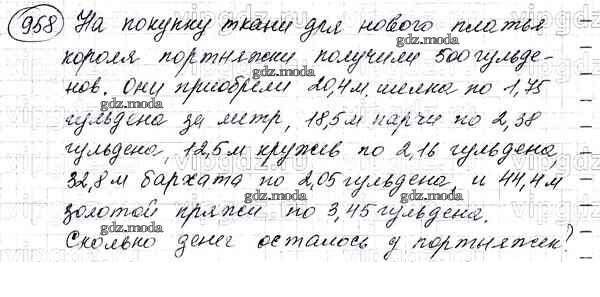 958 На покупку ткани для нового платья
короля портняжки получили 500 гульде-
нов. Они приобрели 20,4 м шелка по 1,75
гульдена за метр, 18,5 м парчи по 2,38
гульдена, 12,5 м кружев по 2,16 гульдена,
32,8 м бархата по 2,05 гульдена, и 44,4 м
золотой пряжи по 3,45 гульдена.
Сколько денег осталось у портняжек?
gdz.moda
gdz.moda
gdz.moda
gdz.moda
gdz.moda
gdz.moda
gdz.moda
gdz.moda